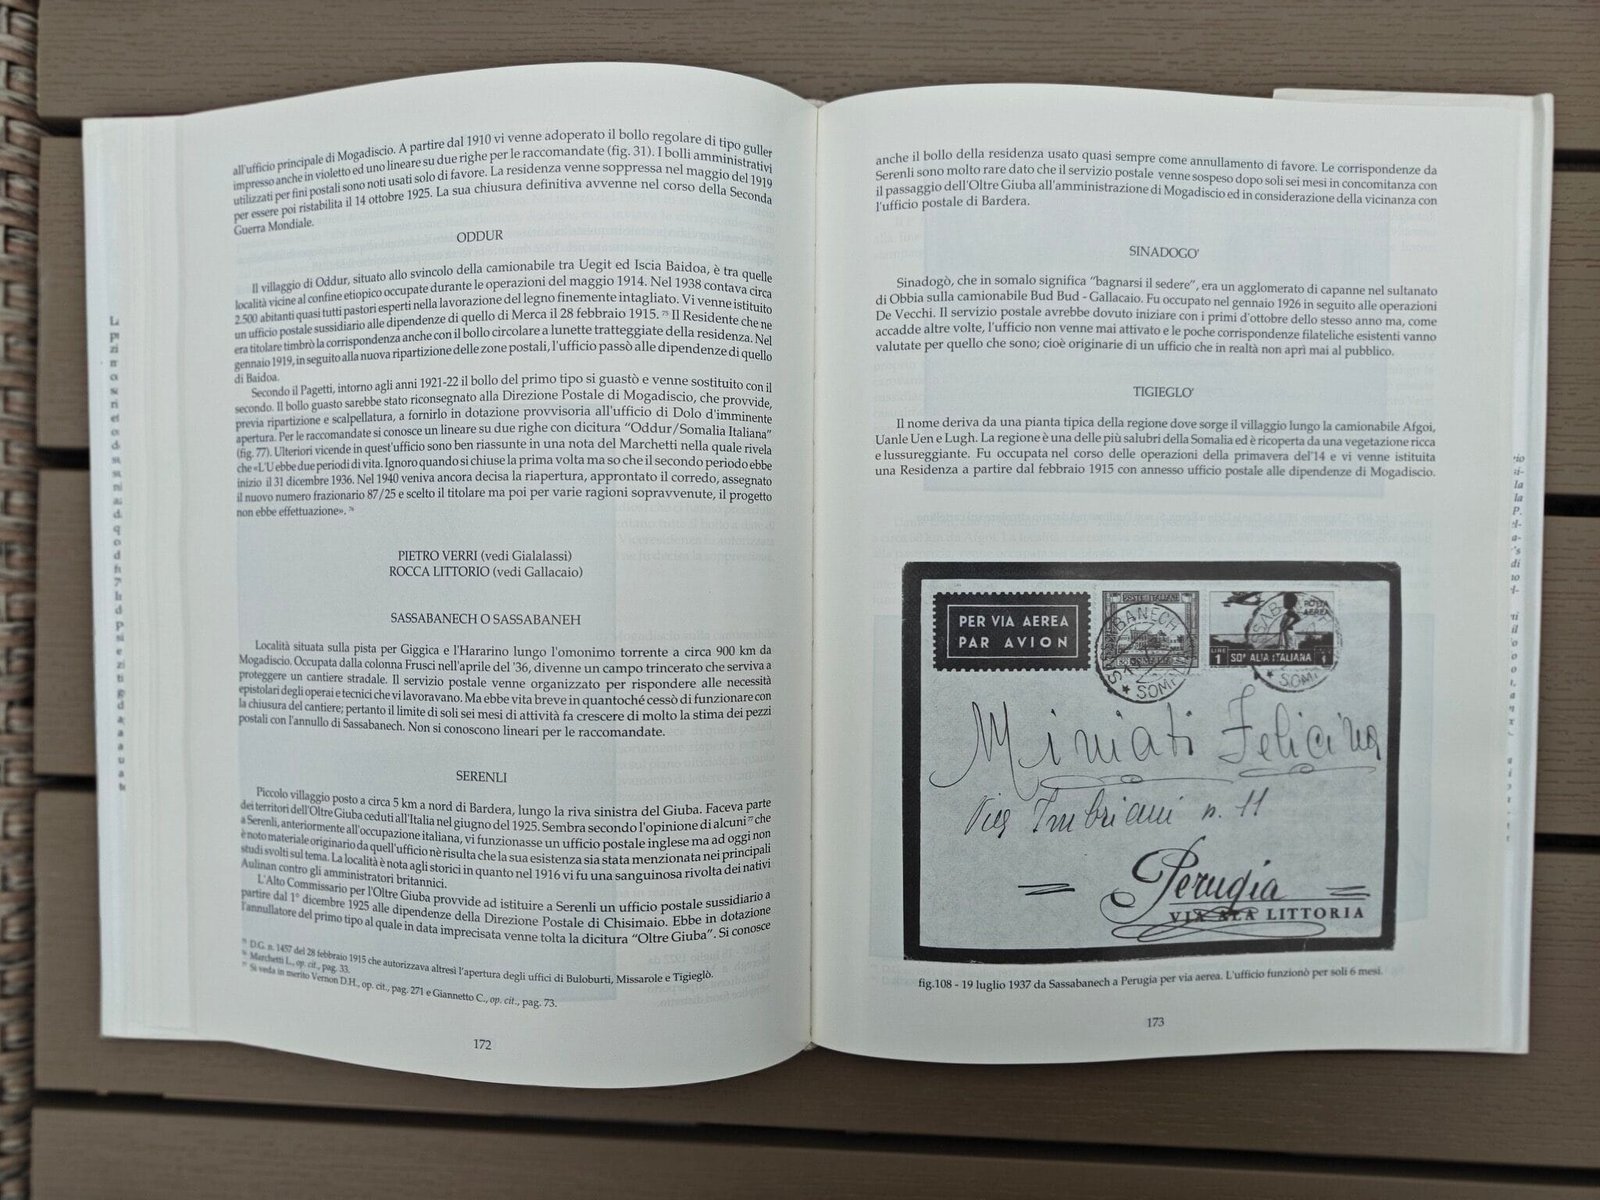 all'ufficio principale di Mogadiscio. A partire dal 1910 vi venne adoperato il bollo regolare di tipo guller
impresso anche in violetto ed uno lineare su due righe per le raccomandate (fig. 31). I bolli amministrativi
utilizzati per fini postali sono noti usati solo di favore. La residenza venne soppressa nel maggio del 1919
per essere poi ristabilita il 14 ottobre 1925. La sua chiusura definitiva avvenne nel corso della Seconda
Guerra Mondiale.
ODDUR
Il villaggio di Oddur, situato allo svincolo della camionabile tra Uegit ed Iscia Baidoa, è tra quelle
località vicine al confine etiopico occupate durante le operazioni del maggio 1914. Nel 1938 contava circa
2.500 abitanti quasi tutti pastori esperti nella lavorazione del legno finemente intagliato. Vi venne istituito
un ufficio postale sussidiario alle dipendenze di quello di Merca il 28 febbraio 1915. 75 Il Residente che ne
era titolare timbrò la corrispondenza anche con il bollo circolare a lunette tratteggiate della residenza. Nel
gennaio 1919, in seguito alla nuova ripartizione delle zone postali, l'ufficio passò alle dipendenze di quello
di Baidoa.
Secondo il Pagetti, intorno agli anni 1921-22 il bollo del primo tipo si guastò e venne sostituito con il
secondo. Il bollo guasto sarebbe stato riconsegnato alla Direzione Postale di Mogadiscio, che provvide,
previa ripartizione e scalpellatura, a fornirlo in dotazione provvisoria all'ufficio di Dolo d'imminente
apertura. Per le raccomandate si conosce un lineare su due righe con dicitura "Oddur/Somalia Italiana"
(fig. 77). Ulteriori vicende in quest'ufficio sono ben riassunte in una nota del Marchetti nella quale rivela
che «L'U ebbe due periodi di vita. Ignoro quando si chiuse la prima volta ma so che il secondo periodo ebbe
inizio il 31 dicembre 1936. Nel 1940 veniva ancora decisa la riapertura, approntato il corredo, assegnato
il nuovo numero frazionario 87/25 e scelto il titolare ma poi per varie ragioni sopravvenute, il progetto
non ebbe effettuazione». 76
PIETRO VERRI (vedi Gialalassi)
ROCCA LITTORIO (vedi Gallacaio)
SASSABANECH O SASSABANEH
Località situata sulla pista per Giggica e l'Hararino lungo l'omonimo torrente a circa 900 km da
Mogadiscio. Occupata dalla colonna Frusci nell'aprile del '36, divenne un campo trincerato che serviva a
proteggere un cantiere stradale. Il servizio postale venne organizzato per rispondere alle necessità
epistolari degli operai e tecnici che vi lavoravano. Ma ebbe vita breve in quantoché cessò di funzionare con
la chiusura del cantiere; pertanto il limite di soli sei mesi di attività fa crescere di molto la stima dei pezzi
postali con l'annullo di Sassabanech. Non si conoscono lineari per le raccomandate.
SERENLI
Piccolo villaggio posto a circa 5 km a nord di Bardera, lungo la riva sinistra del Giuba. Faceva parte
dei territori dell'Oltre Giuba ceduti all'Italia nel giugno del 1925. Sembra secondo l'opinione di alcuni 77 che
a Serenli, anteriormente all'occupazione italiana, vi funzionasse un ufficio postale inglese ma ad oggi non
è noto materiale originario da quell'ufficio nè risulta che la sua esistenza sia stata menzionata nei principali
studi svolti sul tema. La località è nota agli storici in quanto nel 1916 vi fu una sanguinosa rivolta dei nativi
Aulinan contro gli amministratori britannici.
L'Alto Commissario per l'Oltre Giuba provvide ad istituire a Serenli un ufficio postale sussidiario a
partire dal 1° dicembre 1925 alle dipendenze della Direzione Postale di Chisimaio. Ebbe in dotazione
l'annullatore del primo tipo al quale in data imprecisata venne tolta la dicitura "Oltre Giuba". Si conosce
75 D.G. n. 1457 del 28 febbraio 1915 che autorizzava altresì l'apertura degli uffici di Buloburti, Missarole e Tigieglò.
76 Marchetti L., op. cit., pag. 33.
77 Si veda in merito Vernon D.H., op. cit., pag. 271 e Giannetto C., op. cit., pag. 73.
172
anche il bollo della residenza usato quasi sempre come annullamento di favore. Le corrispondenze da
Serenli sono molto rare dato che il servizio postale venne sospeso dopo soli sei mesi in concomitanza con
il passaggio dell'Oltre Giuba all'amministrazione di Mogadiscio ed in considerazione della vicinanza con
l'ufficio postale di Bardera.
SINADOGO'
Sinadogò, che in somalo significa "bagnarsi il sedere", era un agglomerato di capanne nel sultanato
di Obbia sulla camionabile Bud Bud - Gallacaio. Fu occupato nel gennaio 1926 in seguito alle operazioni
De Vecchi. Il servizio postale avrebbe dovuto iniziare con i primi d'ottobre dello stesso anno ma, come
accadde altre volte, l'ufficio non venne mai attivato e le poche corrispondenze filateliche esistenti vanno
valutate per quello che sono; cioè originarie di un ufficio che in realtà non aprì mai al pubblico.
TIGIEGLO'
Il nome deriva da una pianta tipica della regione dove sorge il villaggio lungo la camionabile Afgoi,
Uanle Uen e Lugh. La regione è una delle più salubri della Somalia ed è ricoperta da una vegetazione ricca
e lussureggiante. Fu occupata nel corso delle operazioni della primavera del'14 e vi venne istituita
una Residenza a partire dal febbraio 1915 con annesso ufficio postale alle dipendenze di Mogadiscio.
PER VIA AEREA
PAR AVION
POSTE ITALIANE
SASSABANECH
SOMALIA
POSTA
AEREA
LIRE 1 SOMALIA ITALIANA 1
Miniati Felicina
Via Imbriani n. 11
Perugia
VIA ALA LITTORIA
fig.108 - 19 luglio 1937 da Sassabanech a Perugia per via aerea. L'ufficio funzionò per soli 6 mesi.
173